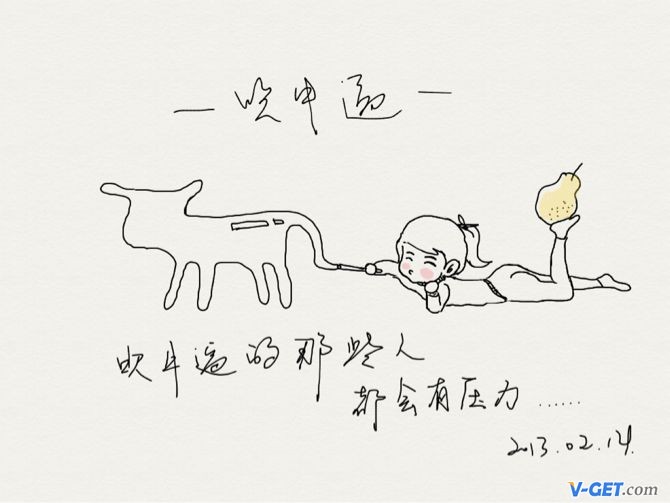 — 吹牛逼 —
吹牛逼的那些人
都会有压力……
2013.02.14.
V-GET.com